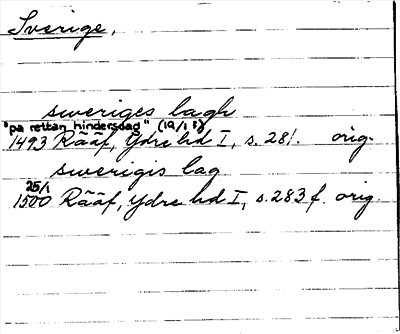 Sverige,
sweriges lagh
"på rettan hindersdag" (19/1 ?)
1493 Rääf, Ydre hd I, s. 281. orig.
swerigis lag
25/1
1500 Rääf, Ydre hd I, s. 283 f. orig.